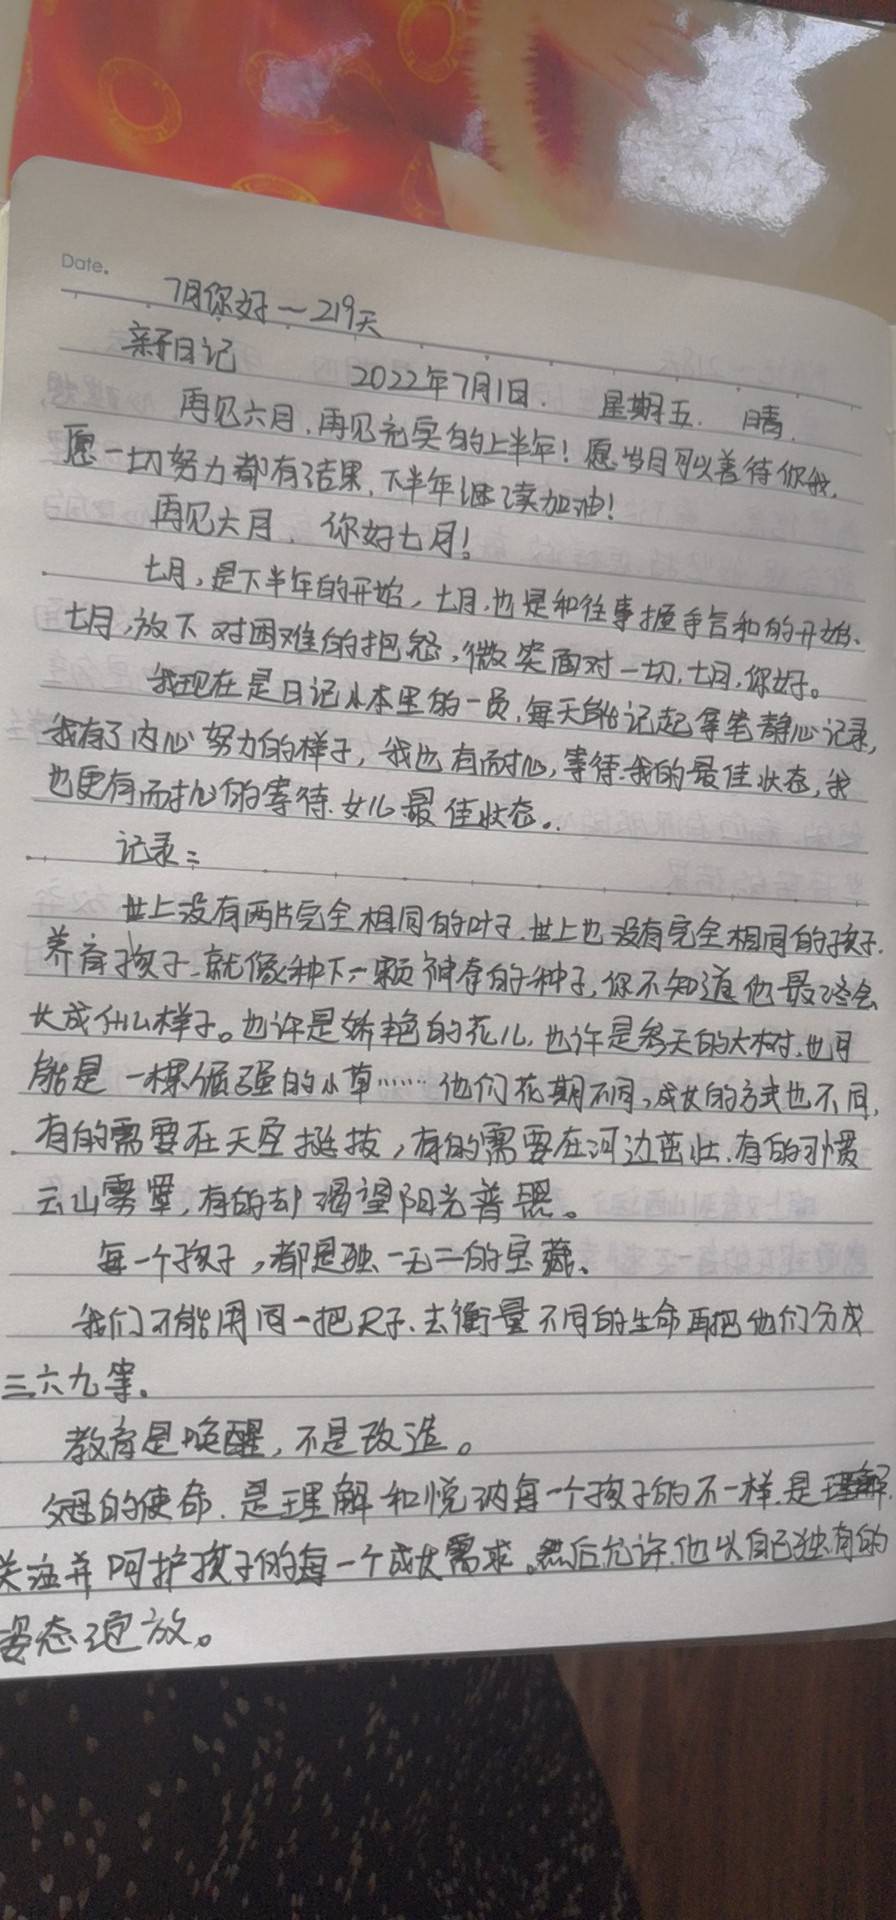 Date.
7月你好一219天
亲子日记
2022年7月1日. 星期五. 晴.
再见六月,再见充实的上半年!愿岁月可以善待你我,
愿一切努力都有结果,下半年继续加油!
再见六月,你好七月!
七月,是下半年的开始,七月,也是和往事握手言和的开始.
七月,放下对困难的抱怨,微笑面对一切,七月,你好。
我现在是日记小本里的一员,每天能记起拿笔静心记录,
我有了内心努力的样子,我也有耐心,等待我的最佳状态,我
也更有耐心的等待女儿最佳状态..
记录:
世上没有两片完全相同的叶子.世上也没有完全相同的孩子.
养育孩子.就像种下一颗神奇的种子,你不知道他最终会
长成什么样子。也许是娇艳的花儿,也许是参天的大树,也可
能是一棵倔强的小草……他们花期不同,成长的方式也不同,
有的需要在天空挺拔,有的需要在河边茁壮.有的习惯
云山雾罩,有的却渴望阳光普照。
每一个孩子,都是独一无二的宝藏.
我们不能用同一把尺子.去衡量不同的生命再把他们分成
三六九等.
教育是唤醒,不是改造。
父母的使命.是理解和悦纳每一个孩子的不一样.是理解.
关注并呵护孩子的每一个成长需求。然后允许他以自己独有的
姿态绽放。